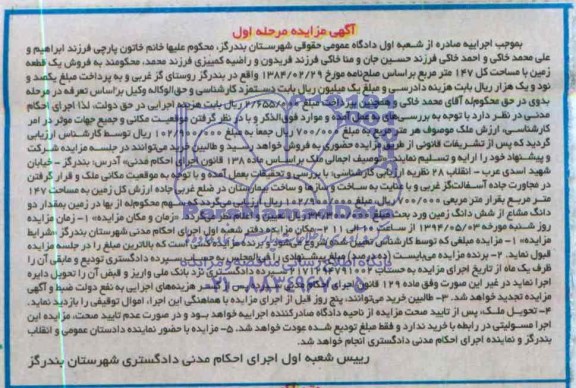 آگهی مزایده مرحله اول
بموجب اجراییه صادره از شعبه اول دادگاه عمومی حقوقی شهرستان بندرگز، محکوم علیها خانم خاتون پارچی فرزند ابراهیم و
علی محمد خاکی و احمد خاکی فرزند حسین جان و منا خاکی فرزند فریدون و راضیه کمیزی فرزند محمد، محکومند به فروش یک قطعه
زمین با مساحت کل ۱۴۷ متر مربع براساس صلح‌نامه مورخ ۱۳۸۴/۰۲/۲۹ واقع در بندرگز روستای گز غربی و به پرداخت مبلغ یکصد و
نود و یک هزار ریال بابت هزینه دادرسی و مبلغ یک میلیون ریال بابت دستمزد کارشناسی و حق‌الوکاله وکیل براساس تعرفه در مرحله
بدوی در حق محکوم‌له آقای محمد خاکی و همچنین پرداخت مبلغ ۲/۶۵۵/۰۰۰ ریال بابت هزینه اجرایی در حق دولت، لذا اجرای احکام
مدنی در نظر دارد با توجه به بررسی‌های بعمل آمده و موارد فوق‌الذکر و با در نظر گرفتن موقعیت مکانی و جمیع جهات موثر در امر
کارشناسی، ارزش ملک موصوف هر متر مربع به مبلغ ۷۰۰/۰۰۰ ریال جمعا به مبلغ ۱۰۲/۹۰۰/۰۰۰ ریال توسط کارشناس ارزیابی
گردید که پس از تشریفات قانونی از طریق مزایده حضوری به فروش خواهد رسید و طالبین خرید می‌توانند در جلسه مزایده شرکت
و پیشنهاد خود را ارایه و تسلیم نمایند. توصیف اجمالی ملک براساس ماده ۱۳۸ قانون اجرای احکام مدنی» آدرس: بندرگز – خیابان
شهید اسدی عرب – انقلاب ۲۸ نظریه ارزیابی کارشناسی: با بررسی و تحقیقات بعمل آمده و با توجه به موقعیت مکانی ملک و قرار گرفتن
در مجاورت جاده آسفالت‌گز غربی و با عنایت به ساخت و سازها و ساخت بیمارستان در ضلع غربی جاده ارزش کل زمین به مساحت ۱۴۷
متر مربع بقرار متر مربعی ۷۰۰/۰۰۰ ریال، مبلغ ۱۰۲/۹۰۰/۰۰۰ ریال ارزیابی می‌گردد که سهم محکوم‌له از بها در زمین بمقدار دو
دانگ مشاع از شش دانگ زمین ورد بحث مبلغ ۳۴/۳۰۰/۰۰۰ ریال تعیین و اعلام می‌گردد. «زمان و مکان مزایده» ۱- زمان مزایده
روز شنبه مورخه ۱۳۹۴/۰۵/۰۳ از ساعت ۱۰ الی ۱۱ ۲- مکان مزایده دفتر شعبه اول اجرای احکام مدنی شهرستان بندرگز «شرایط
مزایده» ۱- مزایده مبلغی که توسط کارشناس تعیین شده شروع می‌شود و برنده مزایده کسی است که بالاترین مبلغ را در جلسه مزایده
قبول نماید. ۲- برنده مزایده می‌بایست (ده درصد) مبلغ پیشنهادی را فی‌المجلس به حساب سپرده دادگستری تودیع و مابقی آن را
ظرف یک ماه از تاریخ اجرای مزایده به حساب ۲۱۷۱۲۹۴۷۹۱۰۰۲ سپرده دادگستری نزد بانک ملی واریز و قبض آن را تحویل دایره
اجرا نماید در غیر این صورت وفق ماده ۱۲۹ قانون اجرای احکام مدنی سپرده پس از کسر هزینه‌های اجرایی به نفع دولت ضبط و آگهی
مزایده تجدید خواهد شد. ۳- طالبین خرید می‌توانند، پنج روز قبل از اجرای مزایده با هماهنگی این اجرا، اموال توقیفی را بازدید نماید.
۴- تحویل ملک، پس از تایید صحت مزایده از ناحیه دادگاه صادرکننده اجراییه خواهد بود و در صورت عدم تایید صحت، مزایده این
اجرا مسولیتی در رابطه با خرید ندارد و فقط مبلغ تودیع شده عودت خواهد شد. ۵- مزایده با حضور نماینده دادستان عمومی و انقلاب
بندرگز و نماینده اجرای احکام مدنی دادگستری انجام خواهد شد.
رییس شعبه اول اجرای احکام مدنی دادگستری شهرستان بندرگز
ParsNamadData
۰۲۱-۸۸۳۴۹۶۷۰-۵